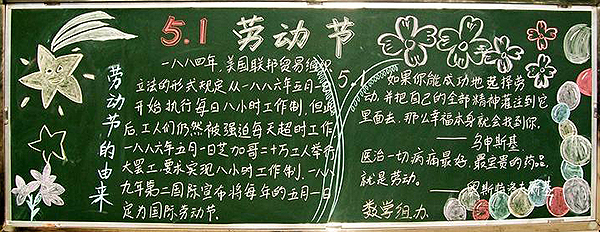 5.1 劳动节
劳动节的由来
一八八四年,美国联邦贸易组织
立法的形式规定从一八八六年五月一日
开始执行每日八小时工作制,但此
后,工人们仍然被强迫每天超时工作
一八八六年五月一日芝加哥二十万工人举行
大罢工,要求实现八小时工作制,一八八
九年第二国际宣布将每年的五月一日
定为国际劳动节.
5.1
如果你能成功地选择劳
动,并把自己的全部精神灌注到它
里面去,那么幸福本身就会找到你.
——乌申斯基
医治一切病痛最好,最宝贵的药品,
就是劳动。
数学组办